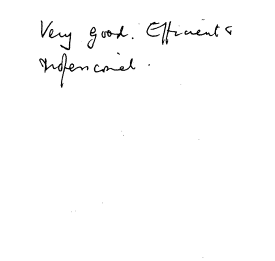 Very good. Efficient &
Professional.